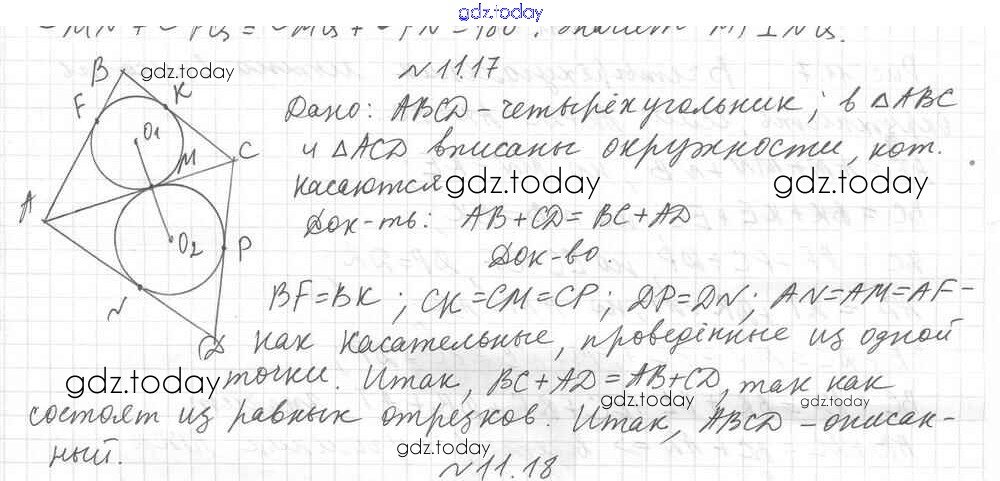 gdz.today
∪MN + ∪PQ = ∪MQ + ∪PN = 180°, значит MP ⊥ NQ.
№11.17
Дано: ABCD – четырёхугольник; в △ABC
и △ACD вписаны окружности, кот.
касаются
Док-ть: AB + CD = BC + AD
Док-во.
BF = BK ; CK = CM = CP ; DP = DN ; AN = AM = AF –
как касательные, проведённые из одной
точки. Итак, BC + AD = AB + CD, так как
состоят из равных отрезков. Итак, ABCD – описан-
ный.
№11.18
B
F
K
O1
M
C
A
O2
P
N
D
gdz.today
gdz.today
gdz.today
gdz.today
gdz.today
gdz.today
gdz.today